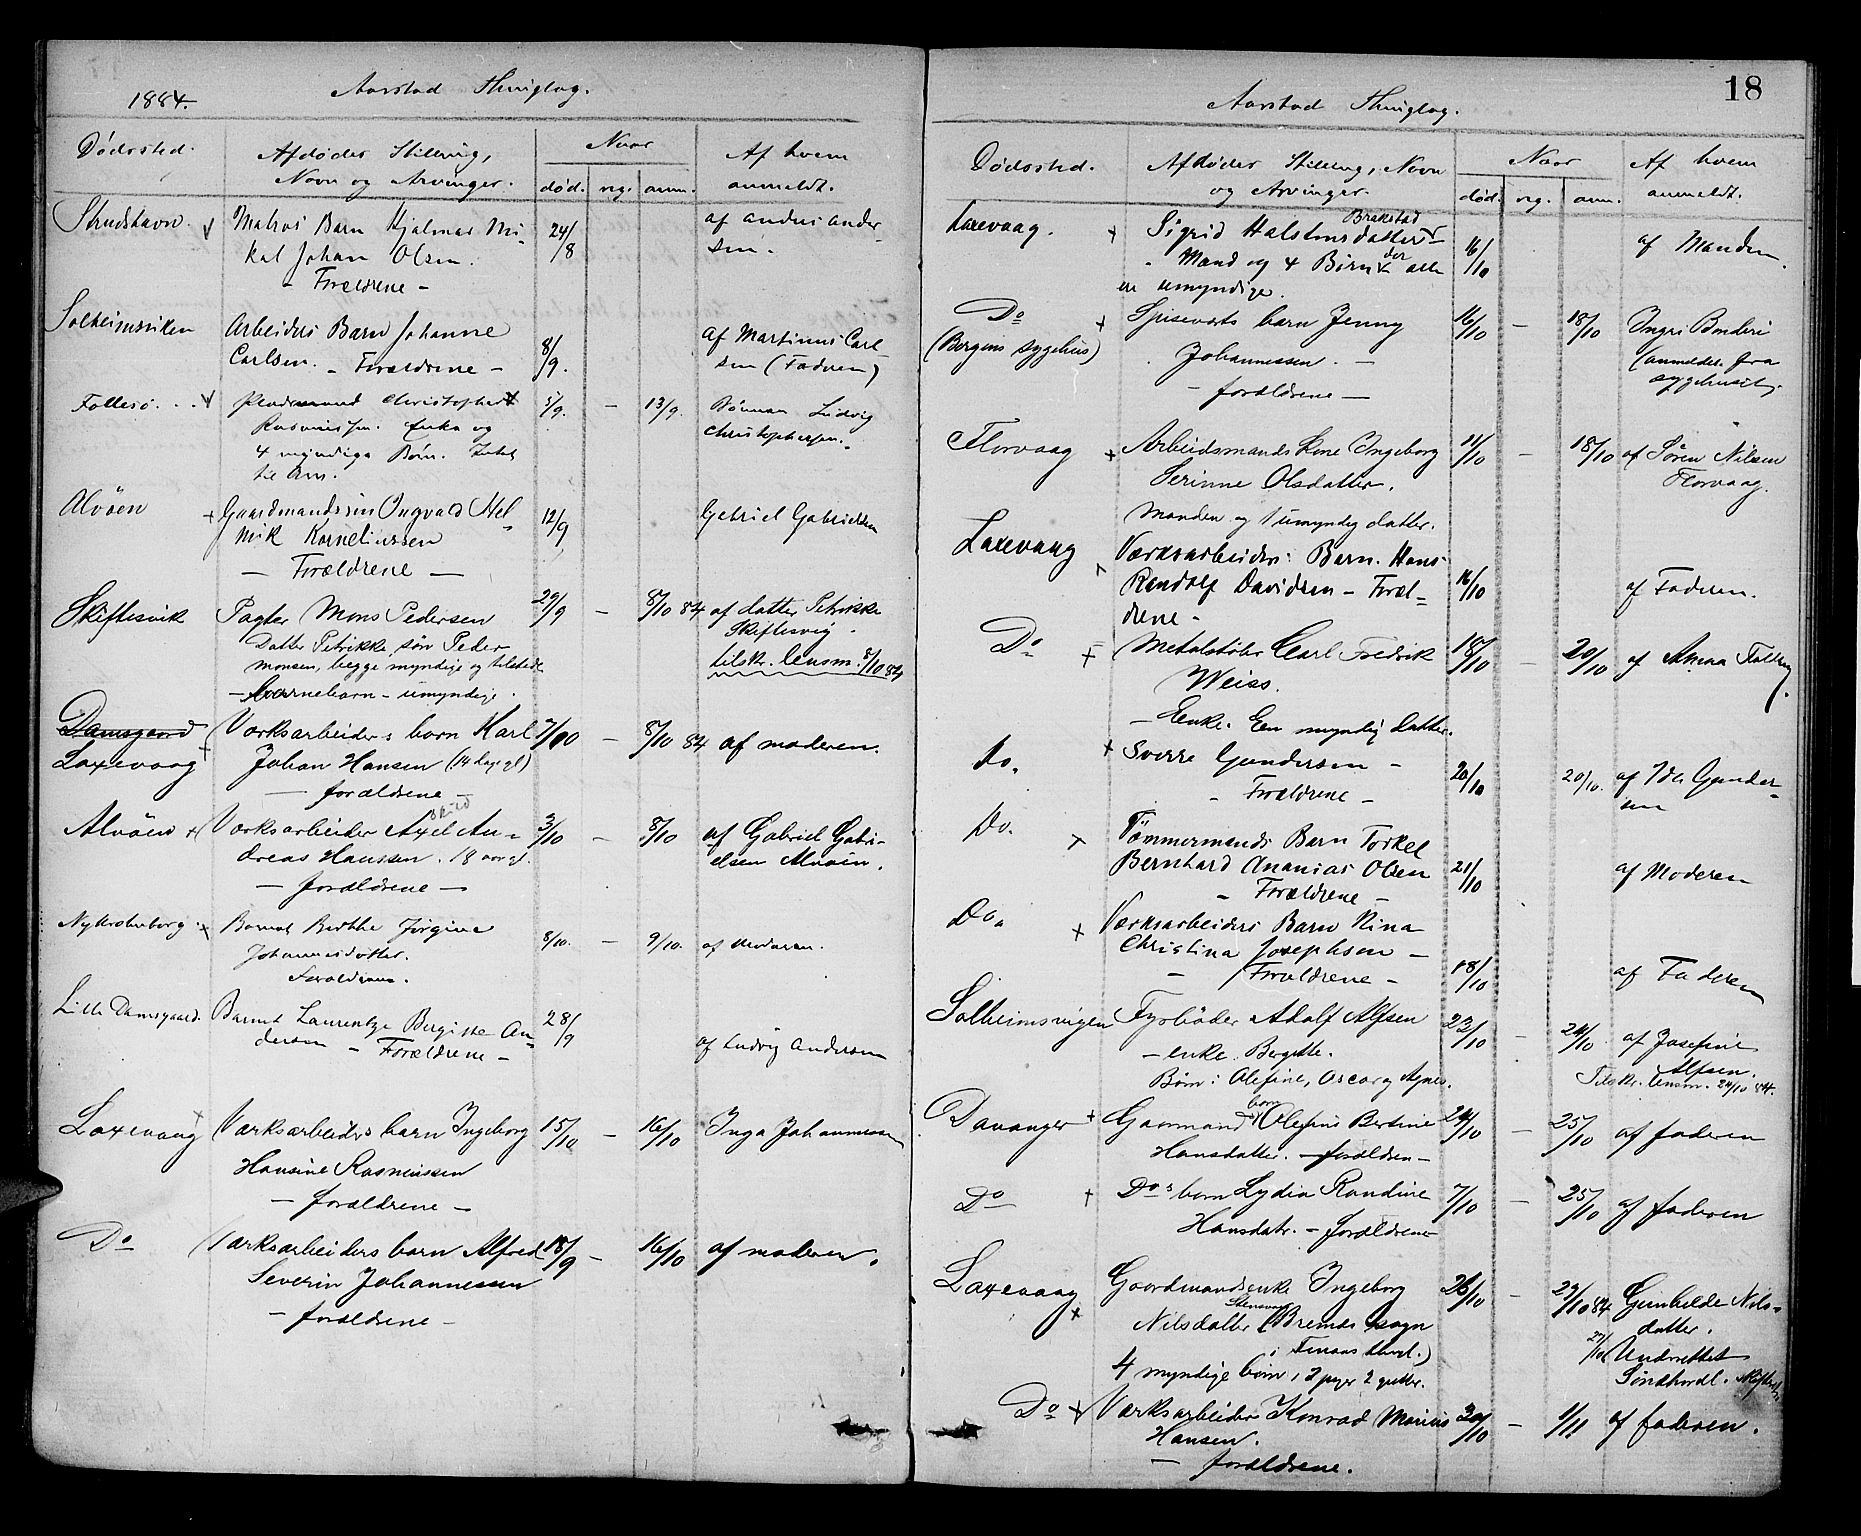 1884.
Aarstad Thinglag.
Dødssted.
Afdødes Stilling,
Navn og Arvinger.
Naar
død. reg. anm.
Af hvem
anmeldt.
Matros Barn Hjalmar Mi-
kal Johan Olsen.
- Forældrene -
24/8
af Anders Ander-
sen.
Solheimsviken
Arbeiders Barn Johanne
Carlsen. - Forældrene -
8/9.
af Martinus Carl
sen (Faderen)
Follesø
Christopher
Rasmussen. Enke og
4 myndige Børn.
5/9. - 13/9.
Sønnen Ludvig
Christophersen.
Alvøen
Gaardmandssøn Ingvald Hel-
mik Korneliussen
- Forældrene -
12/9
Gabriel Gabrielsen
Skiftesvik
Pagter Mons Pedersen
Datter Petrikke, søn Peder
Monsen, begge myndige og tilstede
- Barnebarn - umyndige.
29/9 - 8/10 84
af datter Petrikke
Skiftesvig.
tilskr. lensm. 8/10 84
Damsgaard
Laxevaag
Værksarbeiders barn Karl
Johan Hansen (14 dage gl)
- forældrene -
7/10 - 8/10 84
af moderen.
Alvøen
Værksarbeider Axel An-
dreas Hanssen. 18 aar gl.
- forældrene -
3/10 - 8/10
af Gabriel Gabri-
elsen Alvøen.
Nykrohnborg
Barnet Berthe Jørgine
Johannesdatter.
Forældrene.
8/10. - 9/10.
af Moderen.
Lille Damsgaard.
Barnet Laurentze Bergitte An-
dersen - Forældrene -
28/9
af Ludvig Andersen
Laxevaag
Værksarbeiders barn Ingeborg
Hansine Rasmussen
- forældrene -
15/10 - 16/10
Inga Johannessen
Do
Værksarbeiders barn Alfred
Severin Johannessen
- forældrene -
18/9 - 16/10
af moderen.
18
Aarstad Thinglag.
Dødssted.
Afdødes Stilling, Navn
og Arvinger.
Naar
død. reg. anm.
Af hvem
anmeldt.
Laxevaag.
Brakstad
Sigrid Halstensdatter
Mand og 4 Børn der alle
er umyndige.
16/10
af Manden.
Do
(Bergens sygehus)
Spiseværts barn Jenny
Johannessen. -
- forældrene -
16/10 - 18/10
(anmeldt fra
sygehuset).
Florvaag
Arbeidsmands Kone Ingeborg
Serinne Olsdatter.
Manden og 1 umyndig datter.
11/10 - 18/10
af Søren Nilsen
Florvaag.
Laxevaag
Værksarbeiders Barn. Hans
Randolf Davidsen - Foræl-
drene -
16/10
af Faderen.
Do
Metalstøber Carl Fredrik
Weiss.
- Enke. Een myndig Datter.
18/10 - 20/10
Do.
Sverre Gundersen -
- Forældrene -
20/10 20/10.
af Ida Gunder-
sen
Do.
Tømmermands Barn Torkel
Bernhard Ananias Olsen
- Forældrene -
21/10
af Moderen
Do.
Værksarbeiders Barn Nina
Christina Josephsen -
- Forældrene -
18/10
af Faderen
Solheimsvigen
Fyrbøder Adolf Alfsen
- enke. Bergitte.
Børn: Olefine, Oscar og Agnes.
23/10 - 24/10
af Josefine
Alfsen.
Tilskr. lensm. 24/10 84.
Davanger
Gaarmands barn Olefine Bertine
Hansdatter. - forældren -
24/10 - 25/10
af faderen
Do
Dos barn Lydia Randine
Hansdatr. - forældrene
7/10 - 25/10
af faderen
Laxevaag
Gaardmandsenke Ingeborg
Nilsdatter (Bremæs sogn
i Finaas thingl.)
4 myndige børn, 2 piger 2 gutter.
26/10 - 29/10 84
Gunhilde Nils-
datter.
Underrettet
Søndhordl.
Do
Værksarbeider Konrad Marius
Hansen.
- forældrene.
30/10 - 1/11
af faderen.